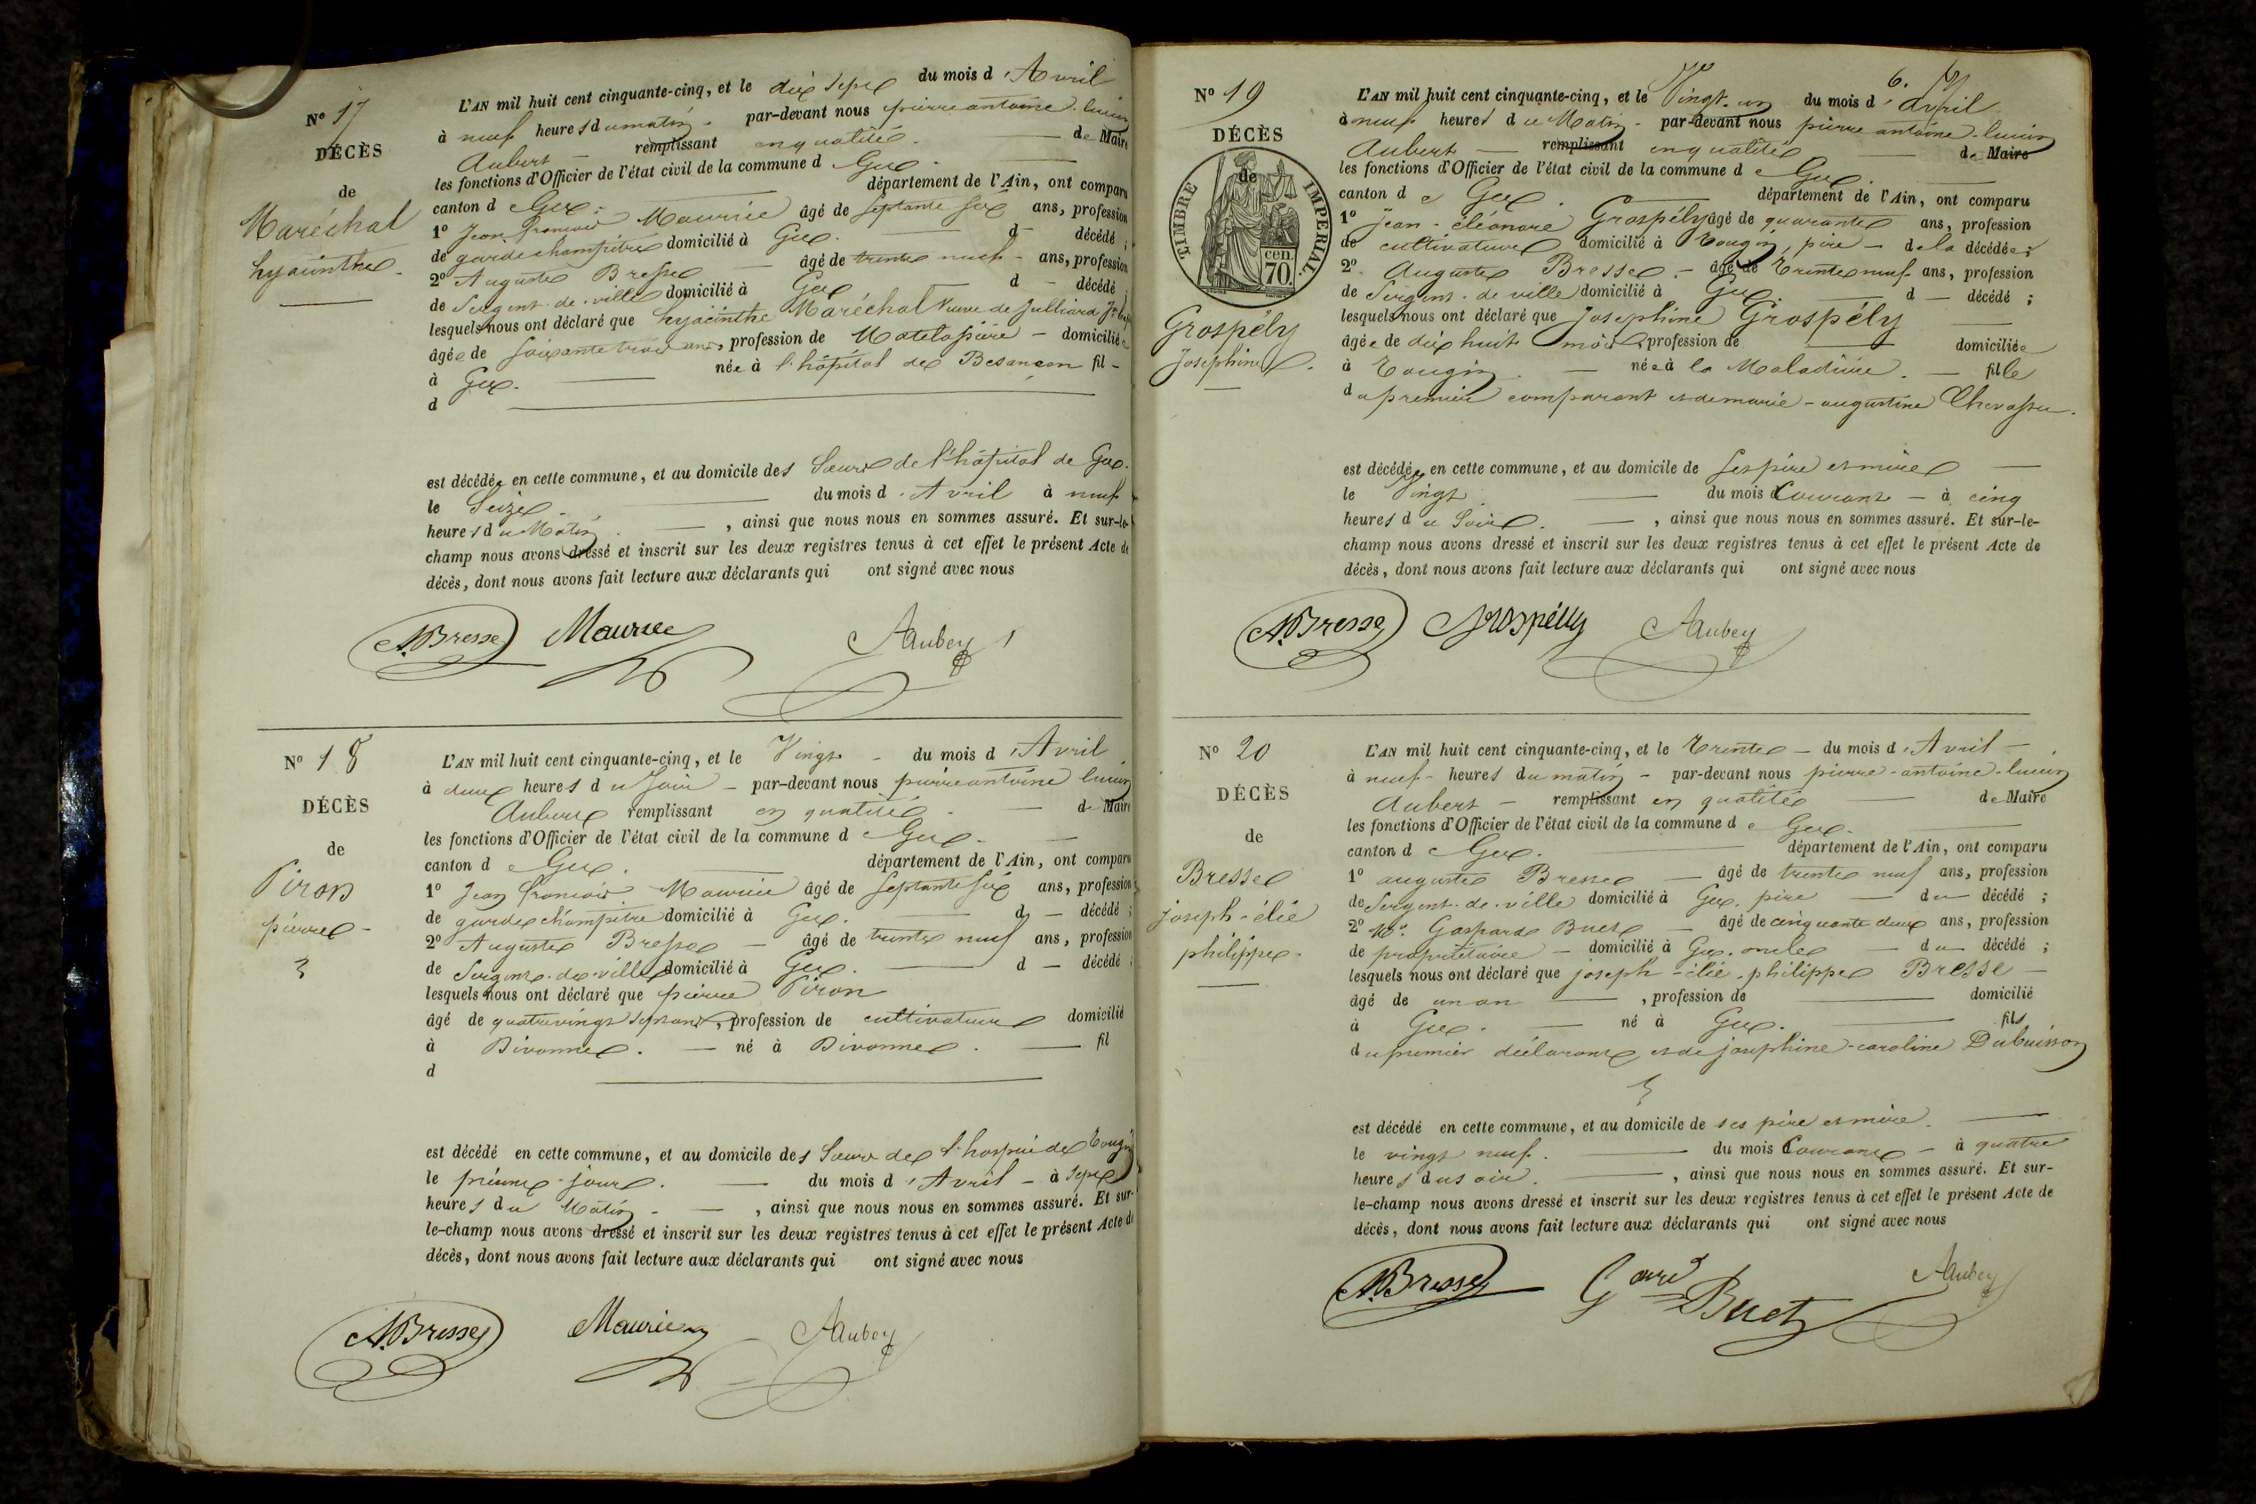 N° 17
DÉCÈS
de
Maréchal
hyacinthe
L'AN mil huit cent cinquante-cinq, et le dix sept du mois d'Avril
à neuf heures du matin par-devant nous pierre antoine lucien
Aubert remplissant en qualité de Maire
les fonctions d'Officier de l'état civil de la commune de Gex
canton de Gex département de l'Ain, ont comparu
1° Jean françois Maurice âgé de septante six ans, profession
de garde champêtre domicilié à Gex d décédé ;
2° Auguste Bresse âgé de trente neuf ans, profession
de Sergent de ville domicilié à Gex d décédé ;
lesquels nous ont déclaré que hyacinthe Maréchal Veuve de Julliard
âgée de soixante trois ans, profession de Matelassière domiciliée
à Gex. née à l'hôpital de Besançon fil
d
est décédée en cette commune, et au domicile des Sœurs de l'hôpital de Gex.
le Seize du mois d'Avril à neuf
heures du Matin , ainsi que nous nous en sommes assuré. Et sur-le-
champ nous avons dressé et inscrit sur les deux registres tenus à cet effet le présent Acte de
décès, dont nous avons fait lecture aux déclarants qui ont signé avec nous
A. Bresse Maurice
N° 18
DÉCÈS
de
Piron
pierre
L'AN mil huit cent cinquante-cinq, et le Vingt du mois d'Avril
à deux heures du Soir par-devant nous pierre antoine lucien
Aubert remplissant en qualité de Maire
les fonctions d'Officier de l'état civil de la commune de Gex
canton de Gex. département de l'Ain, ont comparu
1° Jean françois Maurice âgé de septante six ans, profession
de garde champêtre domicilié à Gex. d décédé ;
2° Auguste Bresse âgé de trente neuf ans, profession
de Sergent de ville domicilié à Gex. d décédé ;
lesquels nous ont déclaré que pierre Piron
âgé de quatrevingt sept ans, profession de cultivateur domicilié
à Divonne. né à Divonne. fil
d
est décédé en cette commune, et au domicile des Sœurs de l'hospice de Tougin
le prémier jour. du mois d'Avril à sept
heures du Matin , ainsi que nous nous en sommes assuré. Et sur-
le-champ nous avons dressé et inscrit sur les deux registres tenus à cet effet le présent Acte de
décès, dont nous avons fait lecture aux déclarants qui ont signé avec nous
A. Bresse Maurice
6.
N° 19
DÉCÈS
de
TIMBRE IMPERIAL.
70. cen.
Grospély
Josephine.
L'AN mil huit cent cinquante-cinq, et le Vingt-un du mois d'avril
à neuf heures du Matin par-devant nous pierre antoine lucien
Aubert remplissant en qualité de Maire
les fonctions d'Officier de l'état civil de la commune de Gex.
canton de Gex. département de l'Ain, ont comparu
1° Jean-éléonore Grospély âgé de quarante ans, profession
de cultivateur domicilié à Tougin, père de la décédée ;
2° Auguste Bresse. âgé de trente neuf ans, profession
de Sergent de ville domicilié à Gex. d décédé ;
lesquels nous ont déclaré que Josephine Grospély
âgée de dix huit mois, profession de domiciliée
à Tougin. née à la Maladière. fille
du premier comparant et de marie-augustine Chevassu.
est décédée en cette commune, et au domicile de ses père et mère
le Vingt du mois Courant à cinq
heures du Soir. , ainsi que nous nous en sommes assuré. Et sur-le-
champ nous avons dressé et inscrit sur les deux registres tenus à cet effet le présent Acte de
décès, dont nous avons fait lecture aux déclarants qui ont signé avec nous
A. Bresse Grospélly
N° 20
DÉCÈS
de
Bresse
joseph-élie
philippe
L'AN mil huit cent cinquante-cinq, et le trente du mois d'Avril
à neuf heures du matin par-devant nous pierre-antoine-lucien
Aubert remplissant en qualité de Maire
les fonctions d'Officier de l'état civil de la commune de Gex.
canton de Gex. département de l'Ain, ont comparu
1° auguste Bresse âgé de trente neuf ans, profession
de Sergent de ville domicilié à Gex. père du décédé ;
2° Gaspard Buet âgé de cinquante deux ans, profession
de propriétaire domicilié à Gex. oncle du décédé ;
lesquels nous ont déclaré que joseph-élie-philippe Bresse
âgé de un an , profession de domicilié
à Gex. né à Gex. fils
du premier déclarant et de joséphine-caroline Dubuisson
est décédé en cette commune, et au domicile de ses père et mère.
le vingt neuf. du mois Courant à quatre
heures du soir. , ainsi que nous nous en sommes assuré. Et sur-
le-champ nous avons dressé et inscrit sur les deux registres tenus à cet effet le présent Acte de
décès, dont nous avons fait lecture aux déclarants qui ont signé avec nous
A. Bresse Buet